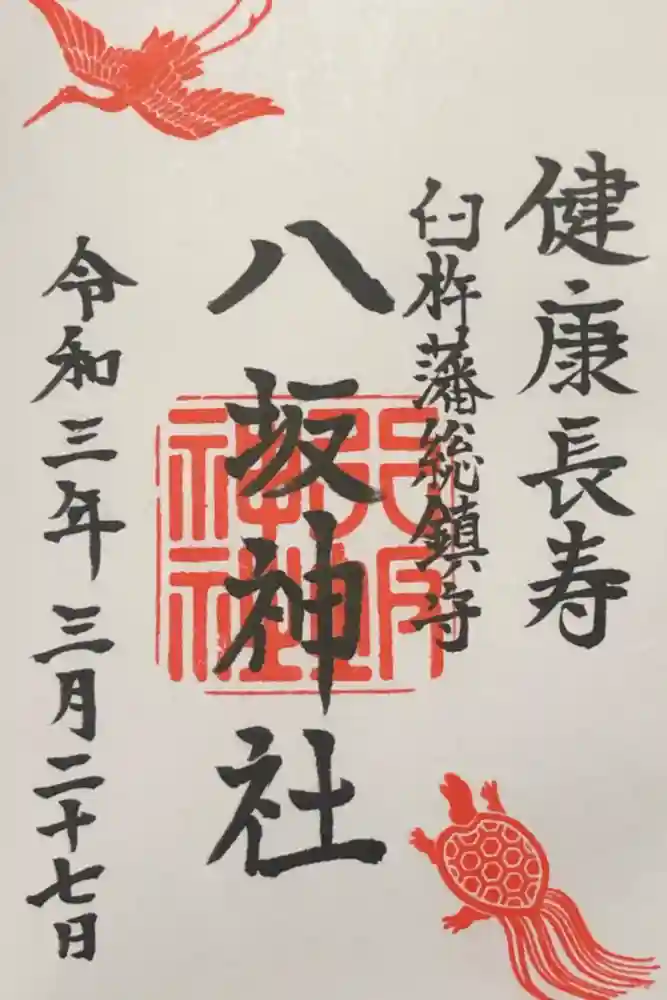 健康長寿
臼杵藩総鎮守
八坂神社
令和三年三月二十七日
八坂神社